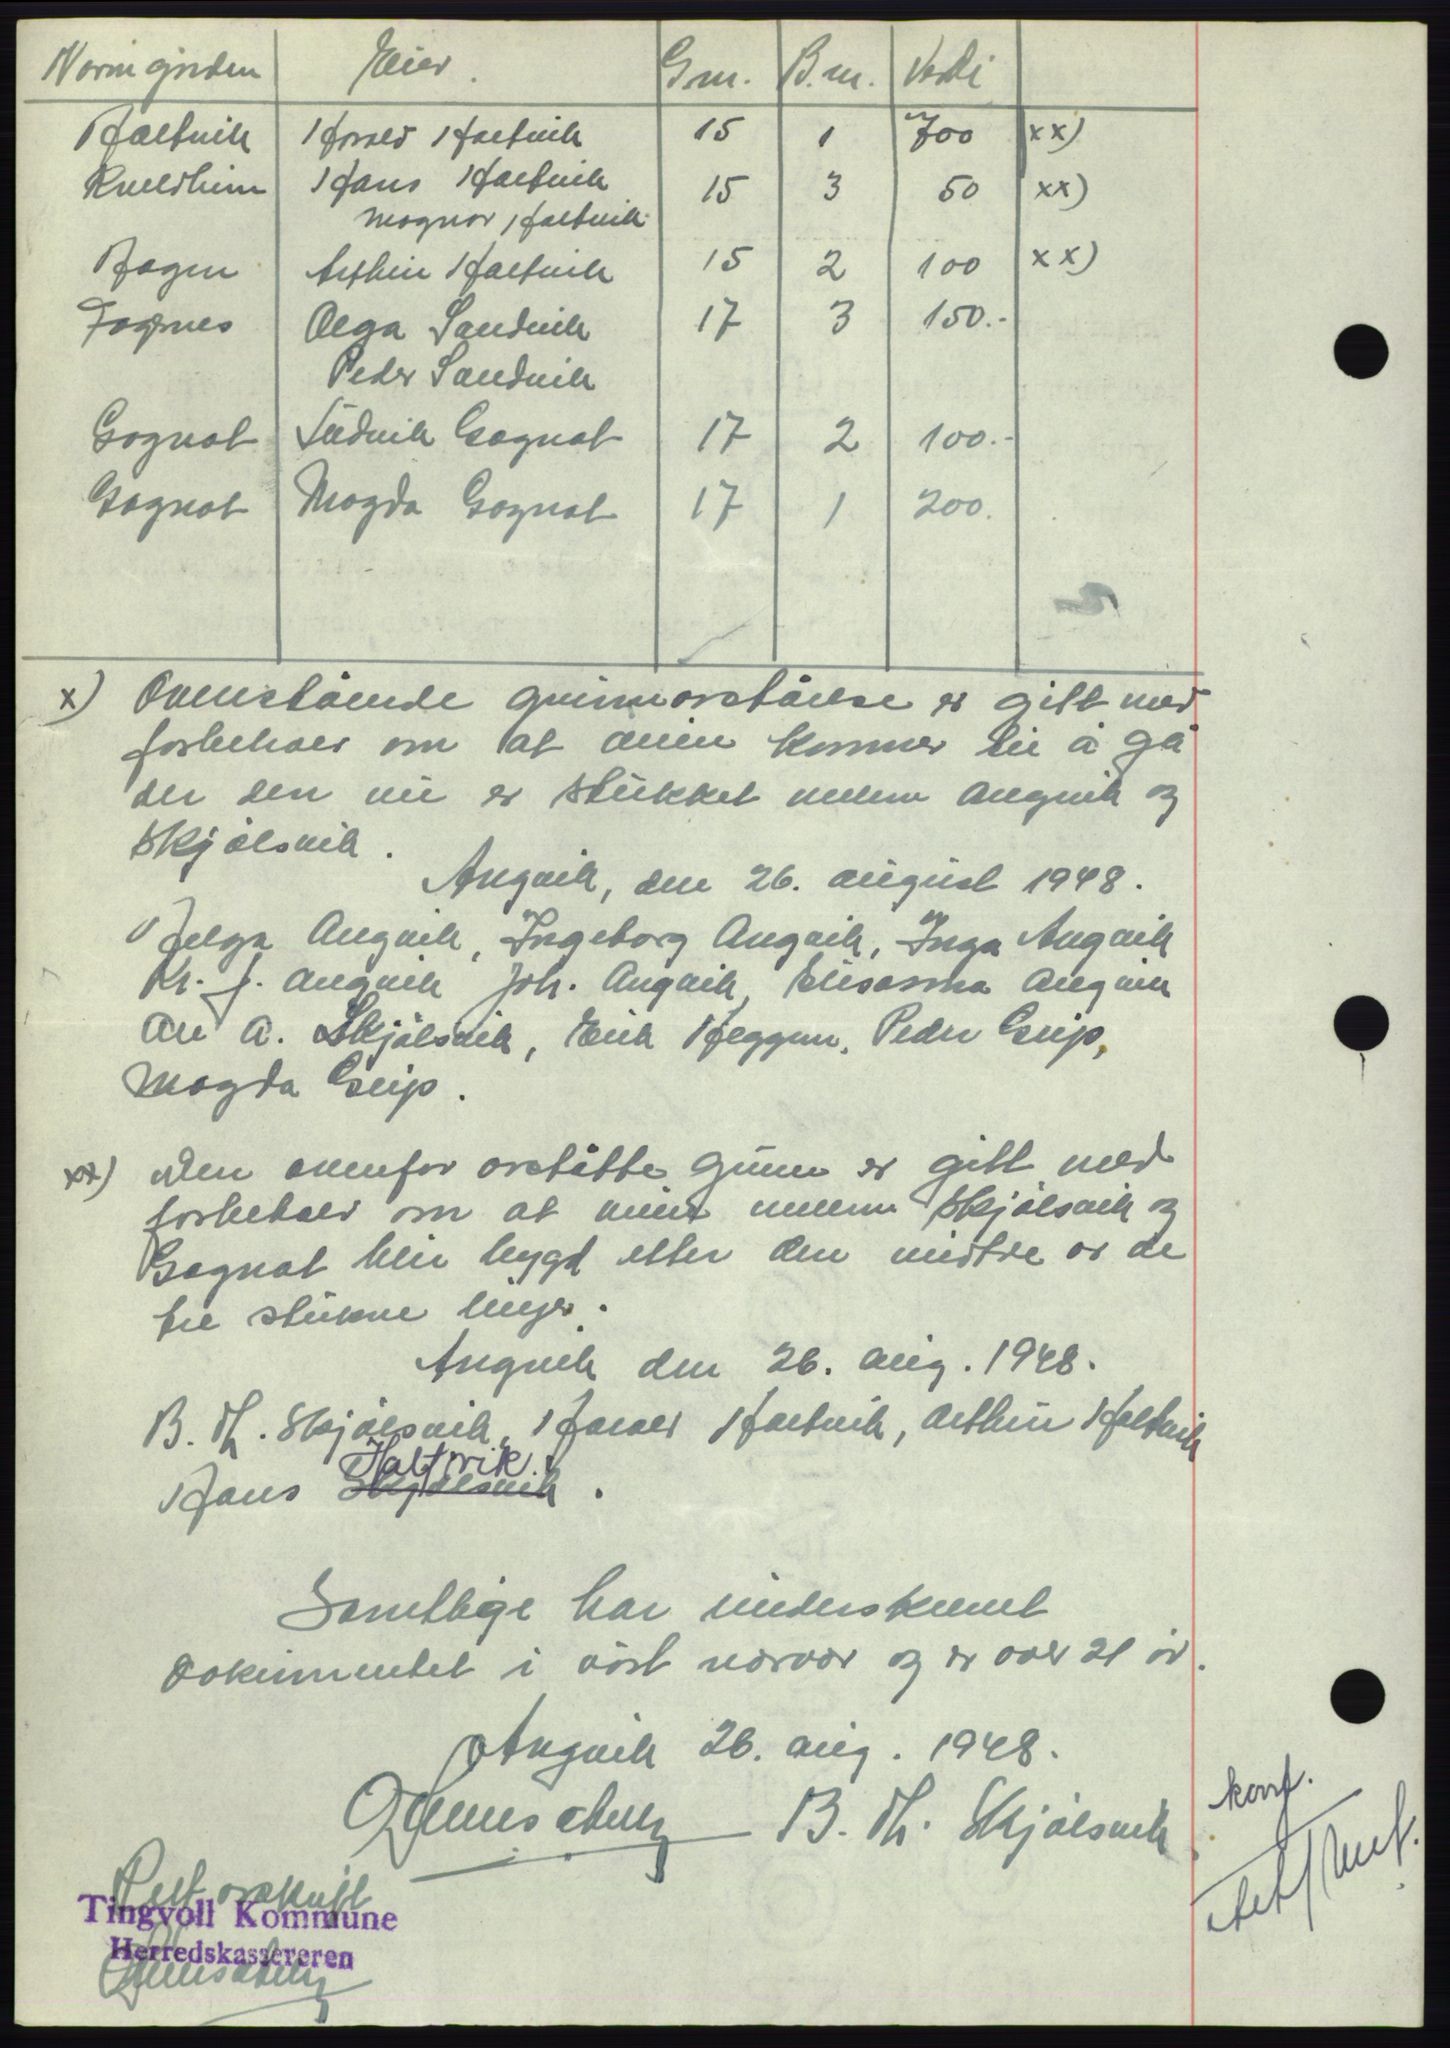 Navn på garden Eier. Gnr. B.nr. Verdi
Haltvik Harald Haltvik 15 1 700 xx)
Kveldheim Hans Haltvik 15 3 50 xx)
Magnar Haltvik
Hagen Arthur Haltvik 15 2 100 xx)
Fagnes Olga Sandvik 17 3 150.-
Peder Sandvik
Gagnat Ludvik Gagnat 17 2 100.-
Gagnat Magda Gagnat 17 1 200.
x) Ovenstående grunnavståelse er gitt med
forbehold om at veien kommer til å gå
der den nu er stukket mellem Angvik og
Skjølsvik.
Angvik, den 26. august 1948.
Helga Angvik, Ingeborg Angvik, Inga Angvik
Kr. J. Angvik Joh. Angvik, Angvik
A. Skjølsvik, Erik Heggem, Peder Grip,
Magda Grip.
xx) Den ovenfor avståtte grunn er gitt med
forbehold om at veien mellem Skjølsvik og
Gagnat blir bygd etter den midtre av de
tre stukne linjer.
Angvik den 26. aug. 1948.
B. Th. Skjølsvik, Harald Haltvik, Arthur Haltvik
Haltvik.
Hans Skjølsvik.
Samtlige har underskrevet
dokumentet i vårt nærvær og er over 21 år.
Angvik 26. aug. 1948.
B. Th. Skjølsvik
Rett avskrift
Tingvoll Kommune
Herredskassereren
konf.